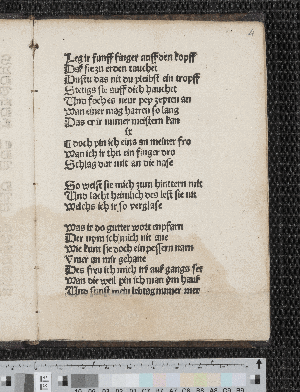 Leg ir funff finger auff den kopff
Das sie zu erden tauchet
Duͤstu das nit du pleibst ein tropff
Steigt sie auff dich hauchet
Und foch es neur pey zepten an
Wan einer mag harren so lang
Das er ir nimer meistern kan
ix
Doch pin ich eins an meiner fro
Wan ich ir thu ein finger dro
Schlag dar mit an die nase
So weist sie mich zum hintern mit
Und lacht heimlich des lest sie nit
Welchs ich ir so verglase
Was ir do gutter wort enpfarn
Der nym ich mich nit ane
Wie kunt sie doch ein pessern narn
Ymer an mir gehane
Des freu ich mich
auff gangs ser
Wan die weil pin ich man ym hauß
Und sunst mein lebtag nimer mer